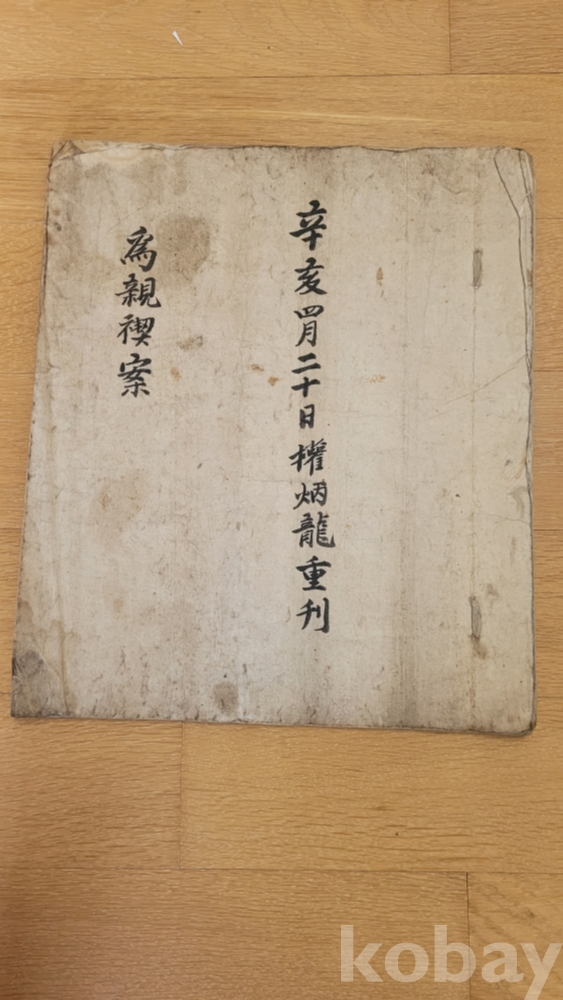 辛亥四月二十日權炳龍重刊
爲親禊案
kobay